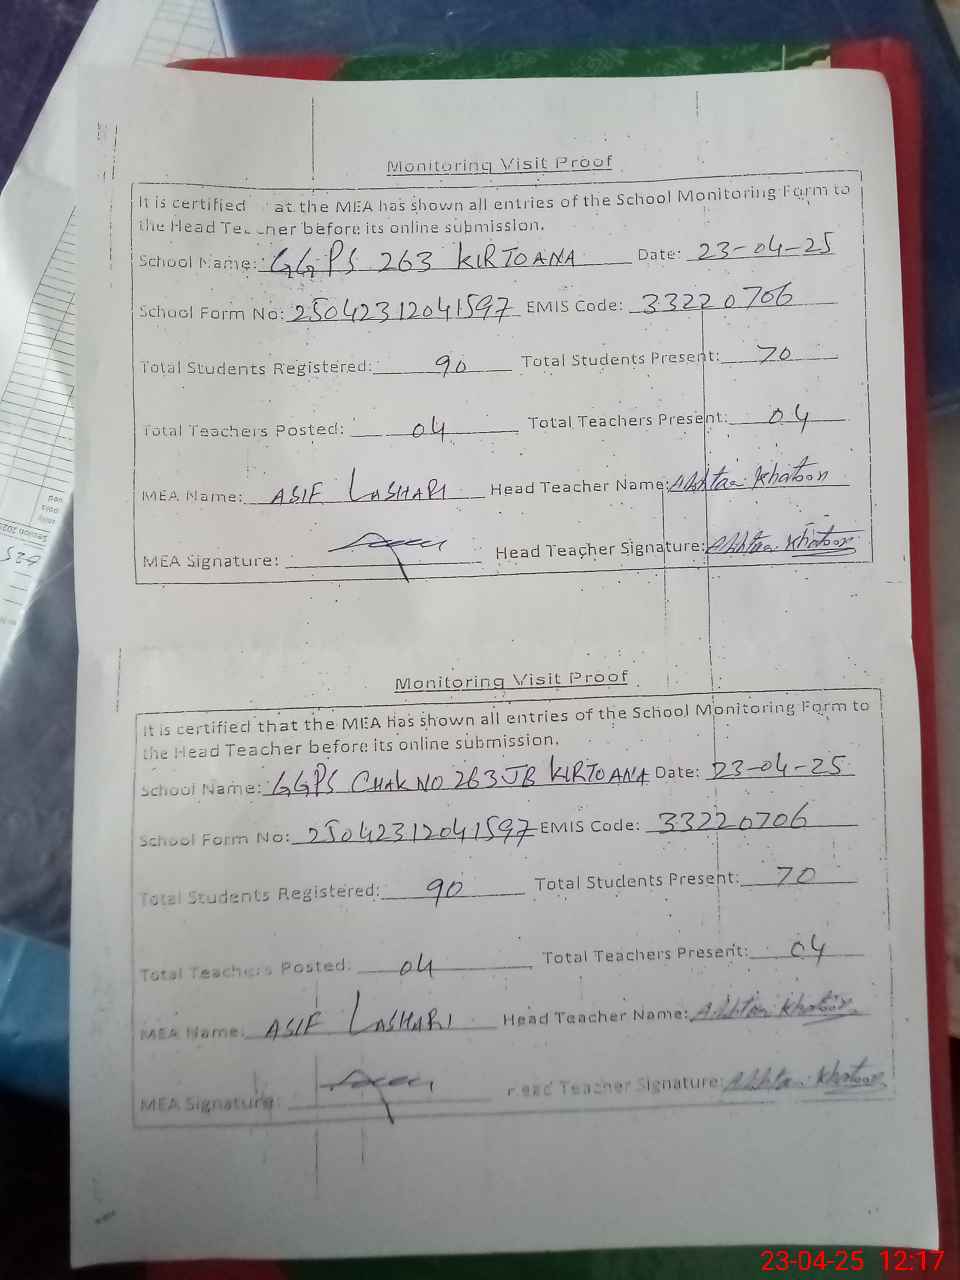 Monitoring Visit Proof
It is certified at the MEA has shown all entries of the School Monitoring Form to
the Head Te ner before its online submission.
School Name: GGPS 263 KIRTOANA Date: 23-04-25
School Form No: 25042312041597 EMIS Code: 33220706
Total Students Registered: 90 Total Students Present: 70
Total Teachers Posted: 04 Total Teachers Present: 04
MEA Name: ASIF LASHARI Head Teacher Name: Akhtar Khatoon
MEA Signature: Head Teacher Signature: Akhtar Khatoon
Monitoring Visit Proof
It is certified that the MEA has shown all entries of the School Monitoring Form to
the Head Teacher before its online submission.
School Name: GGPS CHAK NO 263 JB KIRTOANA Date: 23-04-25
School Form No: 25042312041597 EMIS Code: 33220706
Total Students Registered: 90 Total Students Present: 70
Total Teachers Posted: 04 Total Teachers Present: 04
MEA Name: ASIF LASHARI Head Teacher Name: Akhtar Khatoon
MEA Signature: Head Teacher Signature: Akhtar Khatoon
23-04-25 12:17